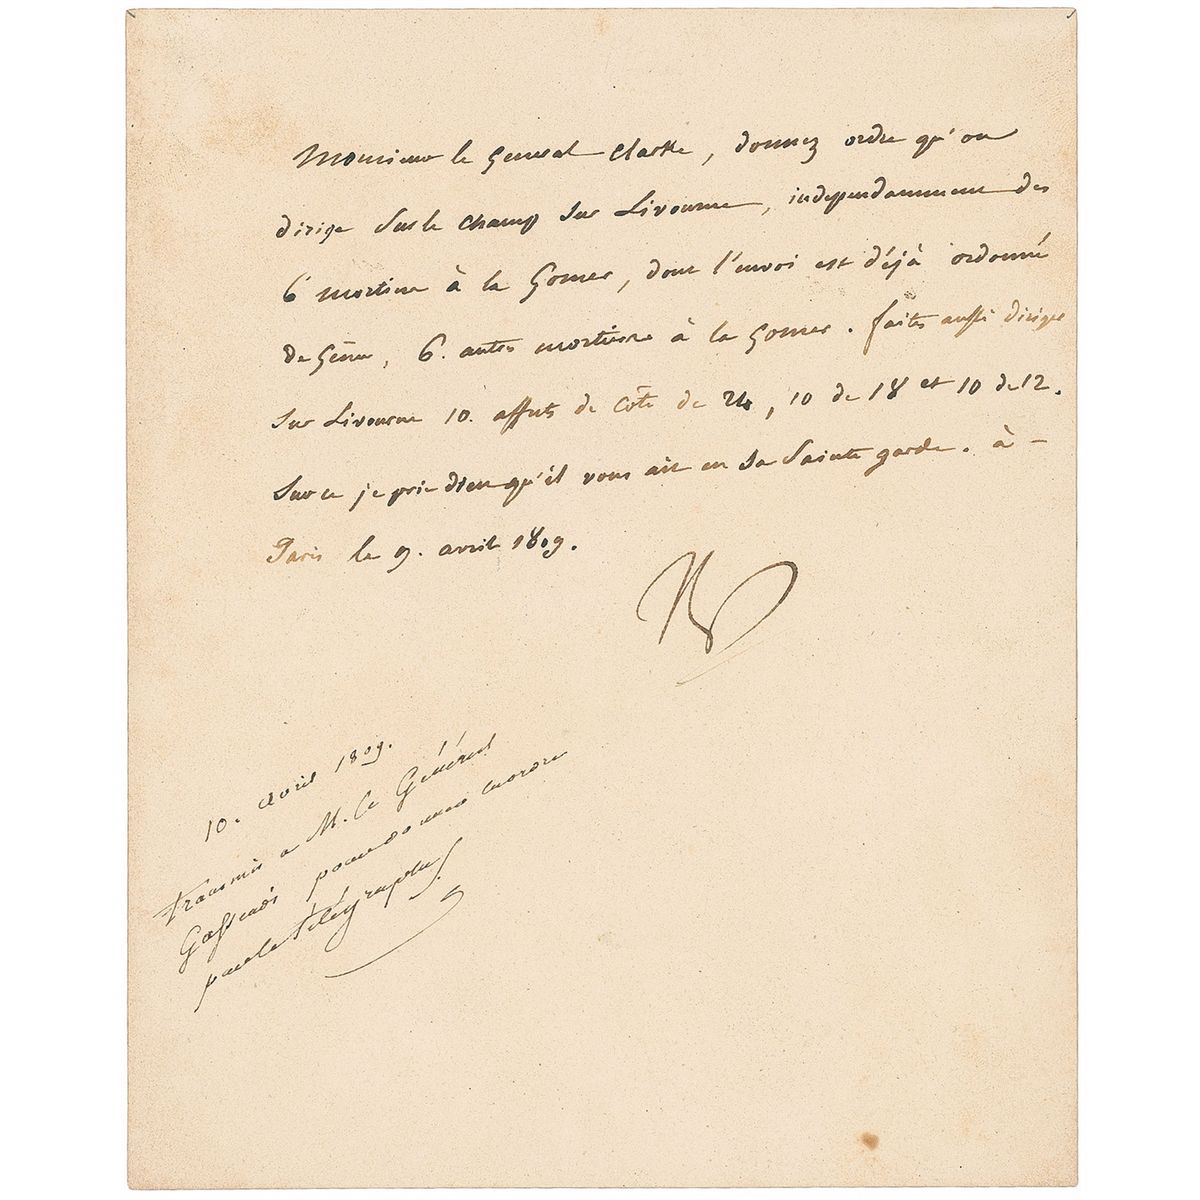 Monsieur le General Clarke, donnez ordre qu'on
dirige sur le champ sur Livourne, independamment des
6 mortiers à la Gomer, dont l'envoi est déjà ordonné
de Gênes, 6. autres mortiers à la Gomer. faites aussi diriger
sur Livourne 10. affuts de côte de 24, 10 de 18 et 10 de 12.
Sur ce je prie dieu qu'il vous ait en sa Sainte garde. à -
Paris le 9. avril 1809.
10. avril 1809.
Transmis a M. le Général
Gassendi pour donner
par le télégraphe